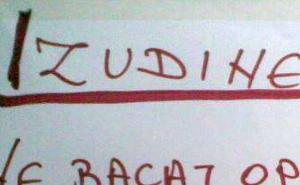 IZUDINE
NE BACAJ OP